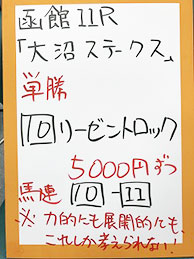 函館11R
「大沼ステークス」
単勝
10 リーゼントロック
5000円ずつ
馬連 10-11
※力的にも展開的にも、
これしか考えられない!